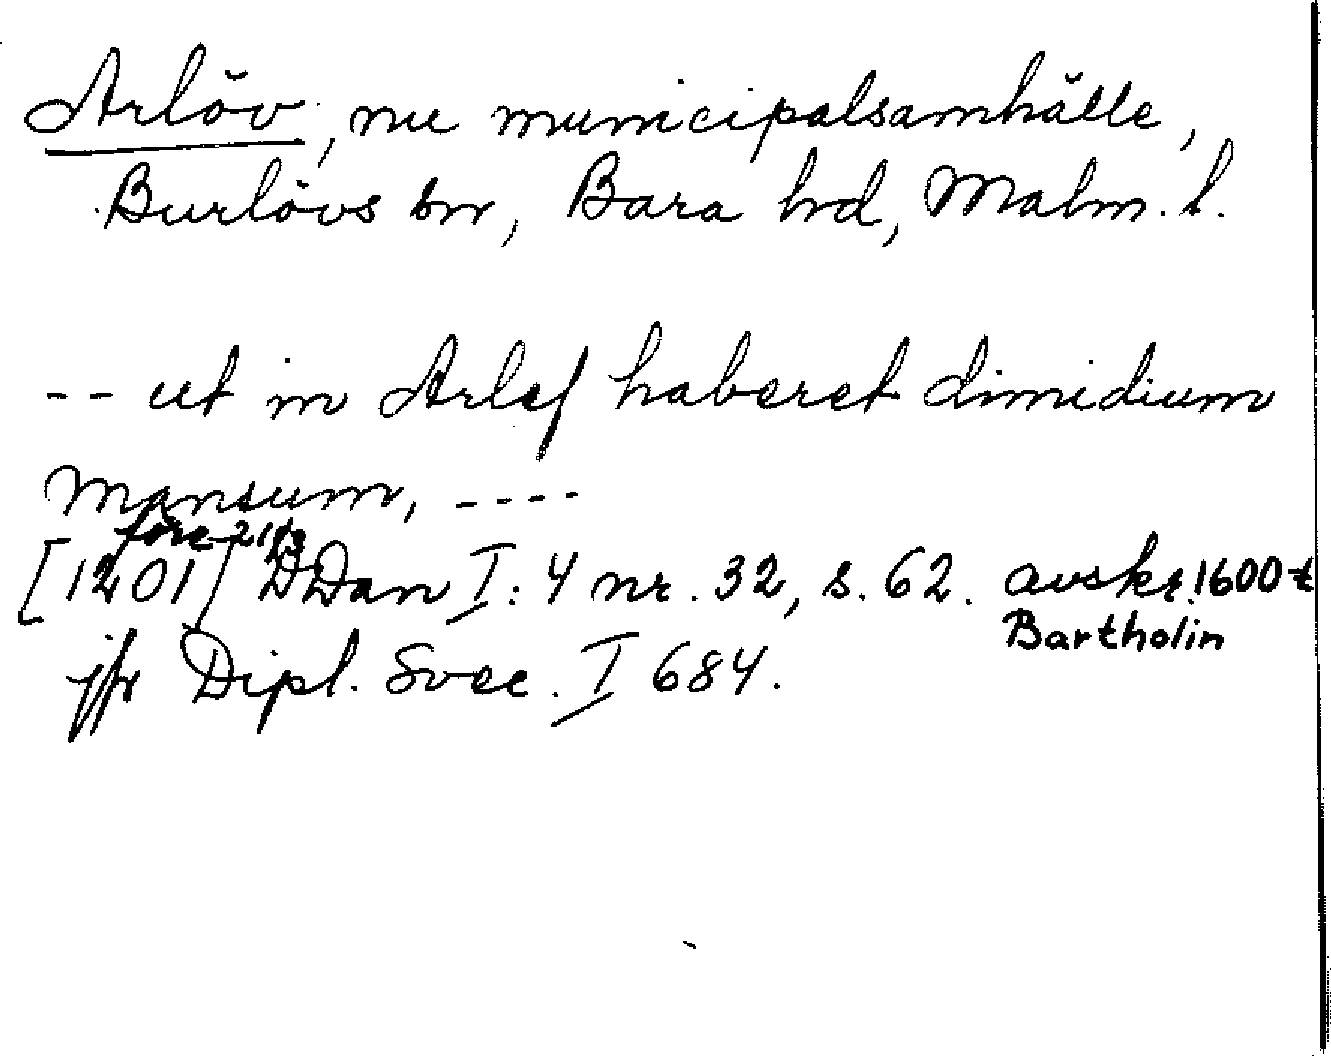 Arlöv, nu municipalsamhälle,
Burlövs sn, Bara hd, Malm. l.
-- ut in Arlef haberet dimidium
mansum, ----
före 21/3
[1201] DDan I:4 nr. 32, s. 62. avskr. 1600-t
Bartholin
jfr Dipl. Svec. I 684.